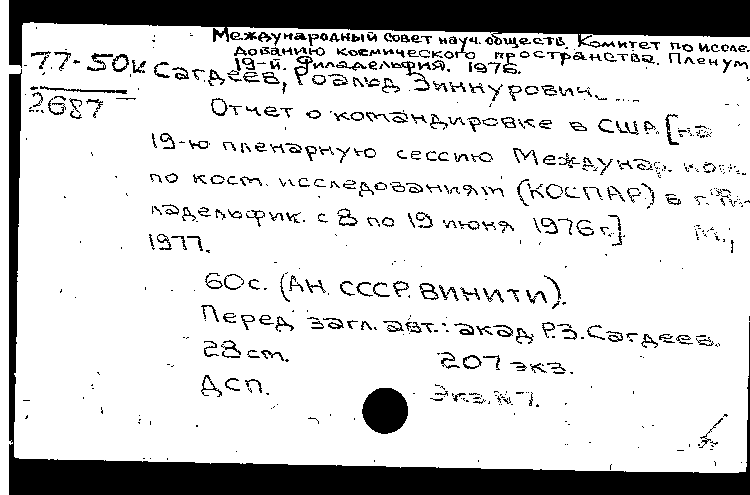 Международный совет науч. обществ. Комитет по иссле-
дованию космического пространства. Пленум
19-й. Филадельфия. 1976.
77-50к Сагдеев, Роальд Зиннурович.
2687
Отчет о командировке в США [на
19-ю пленарную сессию Междунар. ком.
по косм. исследованиям (КОСПАР) в г. Фи-
ладельфик. с 8 по 19 июня 1976 г.] М.,
1977.
60с. (АН СССР. ВИНИТИ).
Перед загл. авт.: акад. Р.З. Сагдеев.
28 cm. 207 экз.
ДСП. Экз. №7.